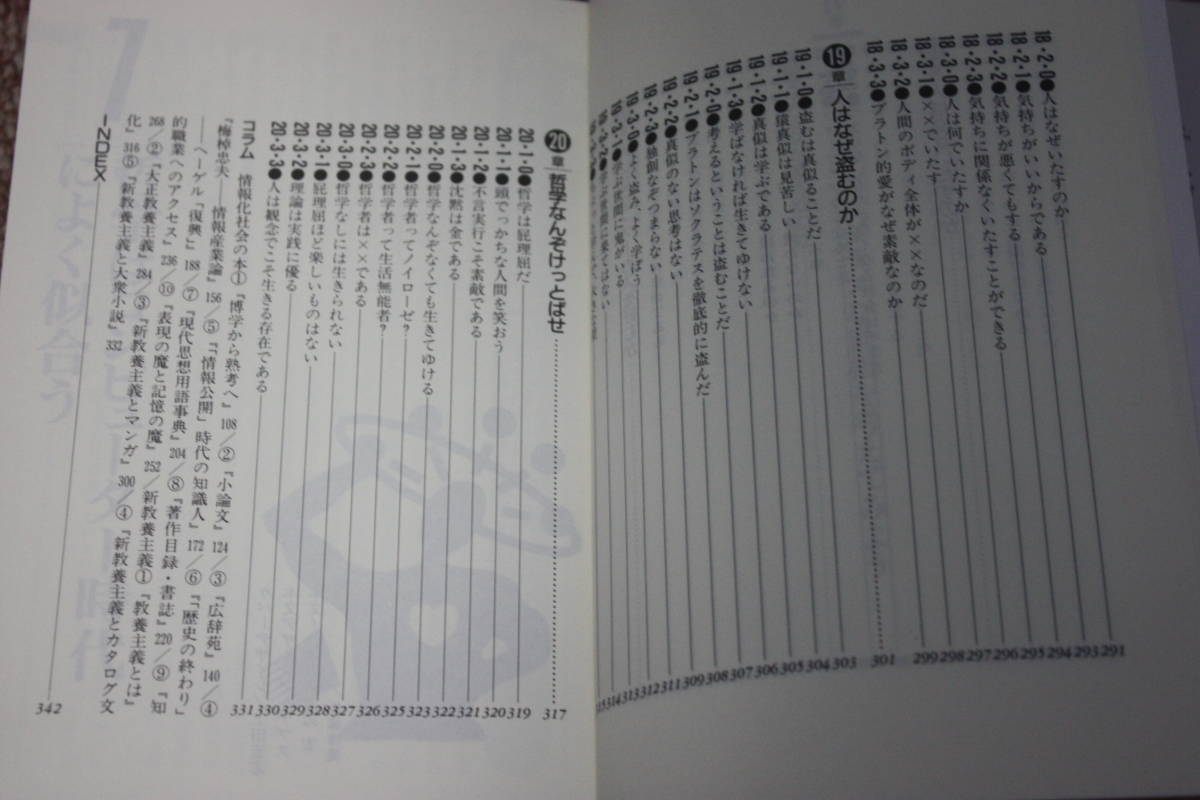 18・2・0●人はなぜいたすのか 291
18・2・1●気持ちがいいからである 293
18・2・2●気持ちが悪くてもする 294
18・2・3●気持ちに関係なくいたすことができる 295
18・3・0●人は何でいたすか 296
18・3・1●××でいたす 297
18・3・2●人間のボディ全体が××なのだ 298
18・3・3●プラトン的愛がなぜ素敵なのか 299
19章 人はなぜ盗むのか 301
19・1・0●盗むは真似ることだ 303
19・1・1●猿真似は見苦しい 304
19・1・2●真似は学ぶである 305
19・1・3●学ばなければ生きてゆけない 306
19・2・0●考えるということは盗むことだ 307
19・2・1●プラトンはソクラテスを徹底的に盗んだ 308
19・2・2●真似のない思考はない 309
19・2・3●独創なぞつまらない 311
19・3・0●よく盗み、よく学ばう 312
19・3・1●学ぶ世間に鬼がいる 313
314
20章 哲学なんぞけっとばせ 317
20・1・0●哲学は屁理屈だ 319
20・1・1●頭でっかちな人間を笑おう 320
20・1・2●不言実行こそ素敵である 321
20・1・3●沈黙は金である 322
20・2・0●哲学なんぞなくても生きてゆける 323
20・2・1●哲学者ってノイローゼ? 325
20・2・2●哲学者って生活無能者? 326
20・2・3●哲学者は××である 327
20・3・0●哲学なしには生きられない 328
20・3・1●屁理屈ほど楽しいものはない 329
20・3・2●理論は実践に優る 330
20・3・3●人は観念でこそ生きる存在である 331
コラム 情報化社会の本①『博学から熟考へ』108/②『小論文』124/③『広辞苑』140/④
『梅棹忠夫――情報産業論』156/⑤『「情報公開」時代の知識人』172/⑥『「歴史の終わり」
――ヘーゲル「復興」』188/⑦『現代思想用語事典』204/⑧『著作目録・書誌』220/⑨『知
的職業へのアクセス』236/⑩『表現の魔と記憶の魔』252/新教養主義①『教養主義とは』
268/②『大正教養主義』284/③『新教養主義とマンガ』300/④『新教養主義とカタログ文
化』316⑤『新教養主義と大衆小説』332
INDEX 342